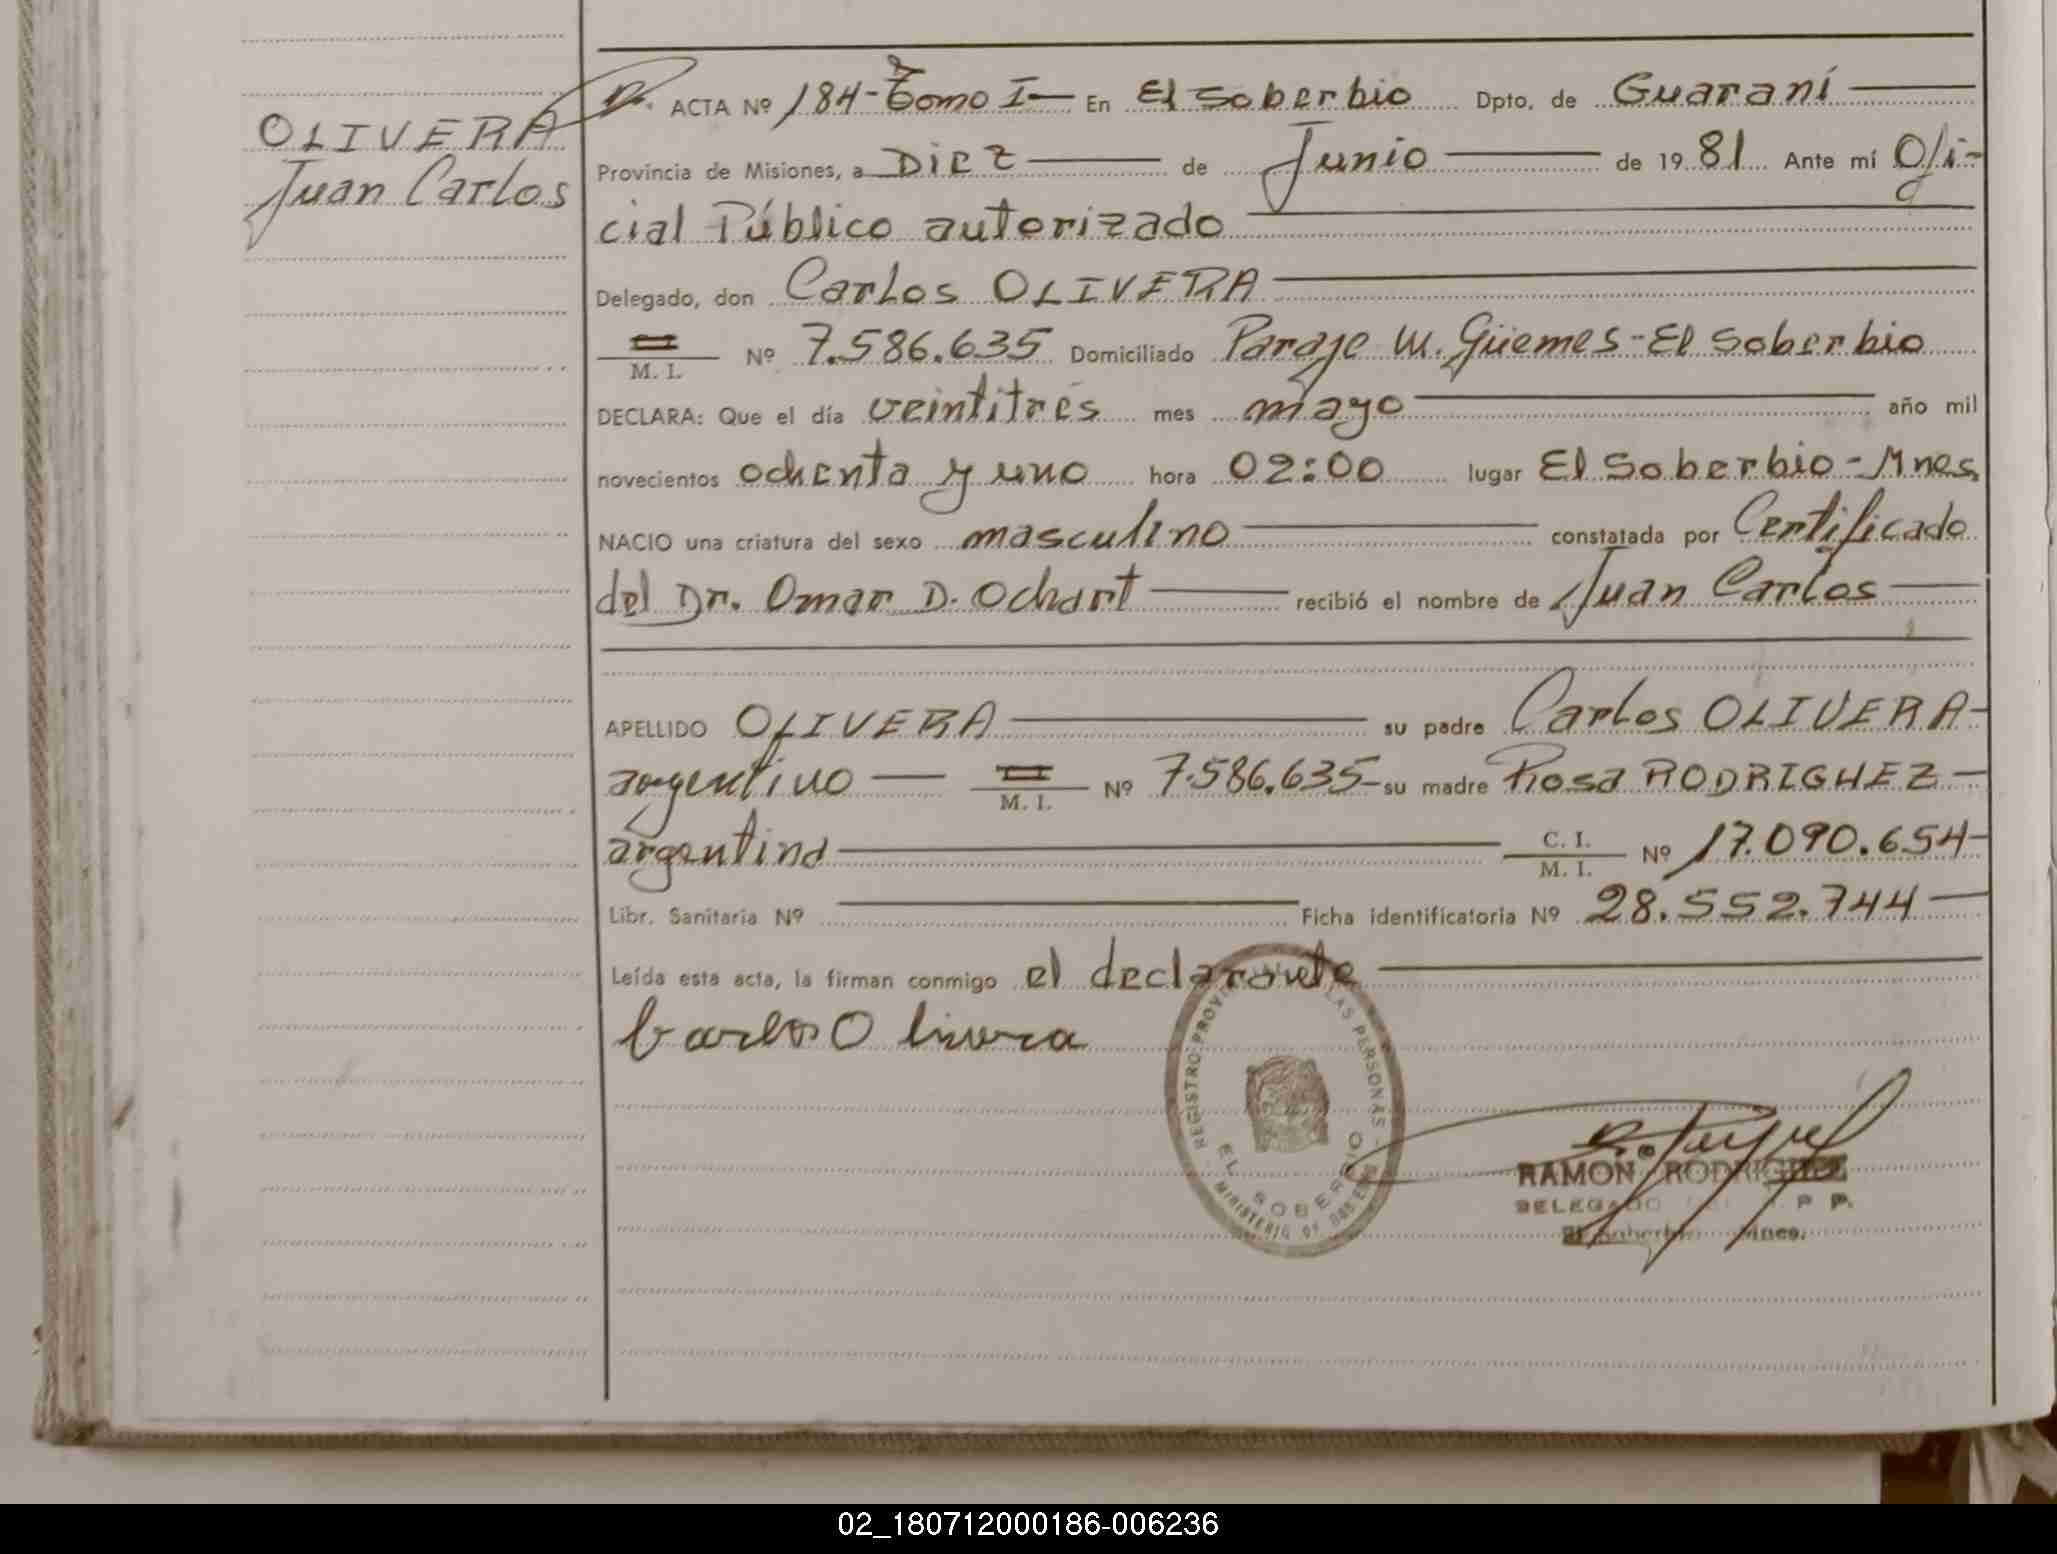 OLIVERA
Juan Carlos
ACTA Nº 184-Tomo I- En El Soberbio Dpto. de Guaraní
Provincia de Misiones, a Diez de Junio de 1981 Ante mí Ofi-
cial Público autorizado
Delegado, don Carlos OLIVERA
M. I. Nº 7.586.635 Domiciliado Paraje M. Güemes-El Soberbio
DECLARA: Que el día veintitrés mes mayo año mil
novecientos ochenta y uno hora 02:00 lugar El Soberbio-Mnes.
NACIO una criatura del sexo masculino constatada por Certificado
del Dr. Omar D. Ochart recibió el nombre de Juan Carlos
APELLIDO OLIVERA su padre Carlos OLIVERA-
argentino M. I. Nº 7.586.635- su madre Rosa RODRIGHEZ-
argentina C. I. M. I. Nº 17.090.654-
Libr. Sanitaria Nº Ficha identificatoria Nº 28.552.744
Leída esta acta, la firman conmigo el declarante
Carlos Olivera
REGISTRO PROVINCIAL DE LAS PERSONAS
EL SOBERBIO
MINISTERIO DE GOBIERNO
RAMON RODRIGUEZ
DELEGADO P. P.
El Soberbio Mnes.
02_180712000186-006236